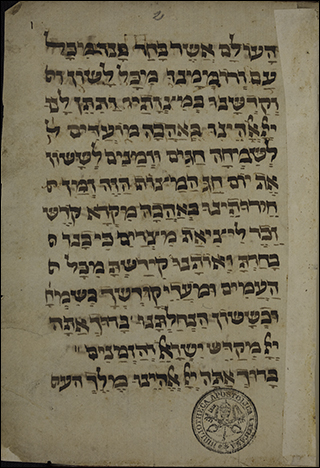 2
1
העולם אשר בחר בנו מכל
עם ורוממנו מכל לשון
וקדשנו במצותיו ותתן לנו
יי אלהינו באהבה מועדים ל
לשמחה חגים וזמנים לששון
את יום חג המצות הזה זמן ח
חורותינו באהבה מקרא קדש
זכר ליציאת מצרים כי בנו ב
בחרת ואותנו קידשת מכל ה
העמים ומעדי קדשך בשמח
ובששון הנחלתנו ברוך אתה
יי מקדש ישראל והזמנים
ברוך אתה יי אלהינו מלך העו
BIBLIOTHECA APOSTOLICA VATICANA